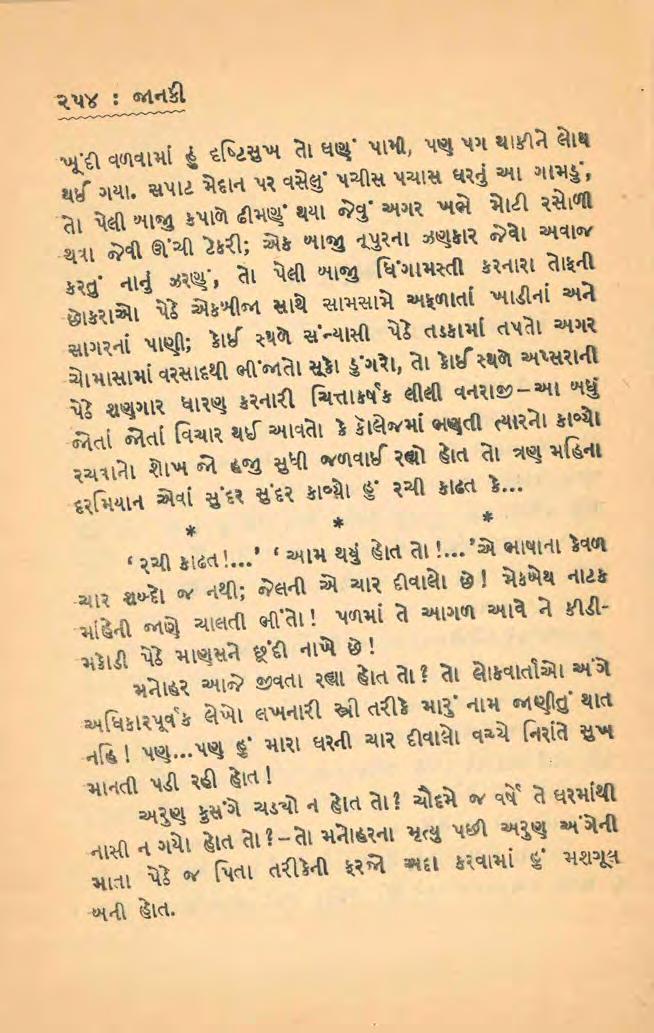 ૨૫૪ : જાનકી
ખૂંદી વળવામાં હું દૃષ્ટિસુખ તો ઘણું પામી, પણ પગ થાકીને લોથ
થઈ ગયા. સપાટ મેદાન પર વસેલું પચીસ પચાસ ઘરનું આ ગામડું,
તો પેલી બાજુ કપાળે ઢીમણું થયા જેવું અગર ખભે મોટી રસોળી
થવા જેવી ઊંચી ટેકરી; એક બાજુ નૂપુરના ઝણકાર જેવો અવાજ
કરતું નાનું ઝરણું, તો પેલી બાજુ ધિંગામસ્તી કરનારા તોફની
છોકરાઓ પેઠે એકબીજા સાથે સામસામે અફળાતાં ખાડીનાં અને
સાગરનાં પાણી; કોઈ સ્થળે સંન્યાસી પેઠે તડકામાં તપતો અગર
ચોમાસામાં વરસાદથી ભીંજાતો સૂકો ડુંગરો, તો કોઈ સ્થળે અપ્સરાની
પેઠે શણગાર ધારણ કરનારી ચિત્તાકર્ષક લીલી વનરાજી–આ બધું
જોતાં જોતાં વિચાર થઈ આવતો કે કૉલેજમાં ભણતી ત્યારનો કાવ્યો
રચવાનો શોખ જો હજી સુધી જળવાઈ રહ્યો હોત તો ત્રણ મહિના
દરમિયાન એવાં સુંદર સુંદર કાવ્યો હું રચી કાઢત કે...
* * *
‘રચી કાઢત!...’ ‘આમ થયું હોત તો!...’એ ભાષાના કેવળ
ચાર શબ્દો જ નથી; જેલની એ ચાર દીવાલો છે! મેકબેથ નાટક
માંહેની જાણે ચાલતી ભીંતો! પળમાં તે આગળ આવે ને કીડી-
મકોડી પેઠે માણસને છૂંદી નાખે છે!
મનોહર આજે જીવતા રહ્યા હોત તો? તો લોકવાર્તાઓ અંગે
અધિકારપૂર્વક લેખો લખનારી સ્ત્રી તરીકે મારું નામ જાણીતું થાત
નહિ! પણ...પણ હું મારા ઘરની ચાર દીવાલો વચ્ચે નિરાંતે સુખ
માનતી પડી રહી હોત!
અરુણ કુસંગે ચડયો ન હોત તો? ચૌદમે જ વર્ષે તે ઘરમાંથી
નાસી ન ગયો હોત તો?–તો મનોહરના મૃત્યુ પછી અરુણ અંગેની
માતા પેઠે જ પિતા તરીકેની ફરજો અદા કરવામાં હું મશગૂલ
બની હોત.